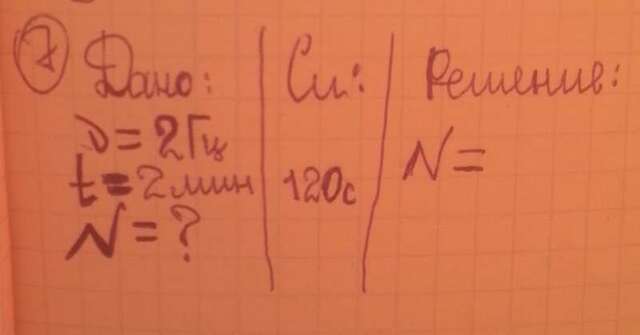 7 Дано:
ν = 2Гц
t = 2 мин
N = ?
Си:
120с
Решение:
N =